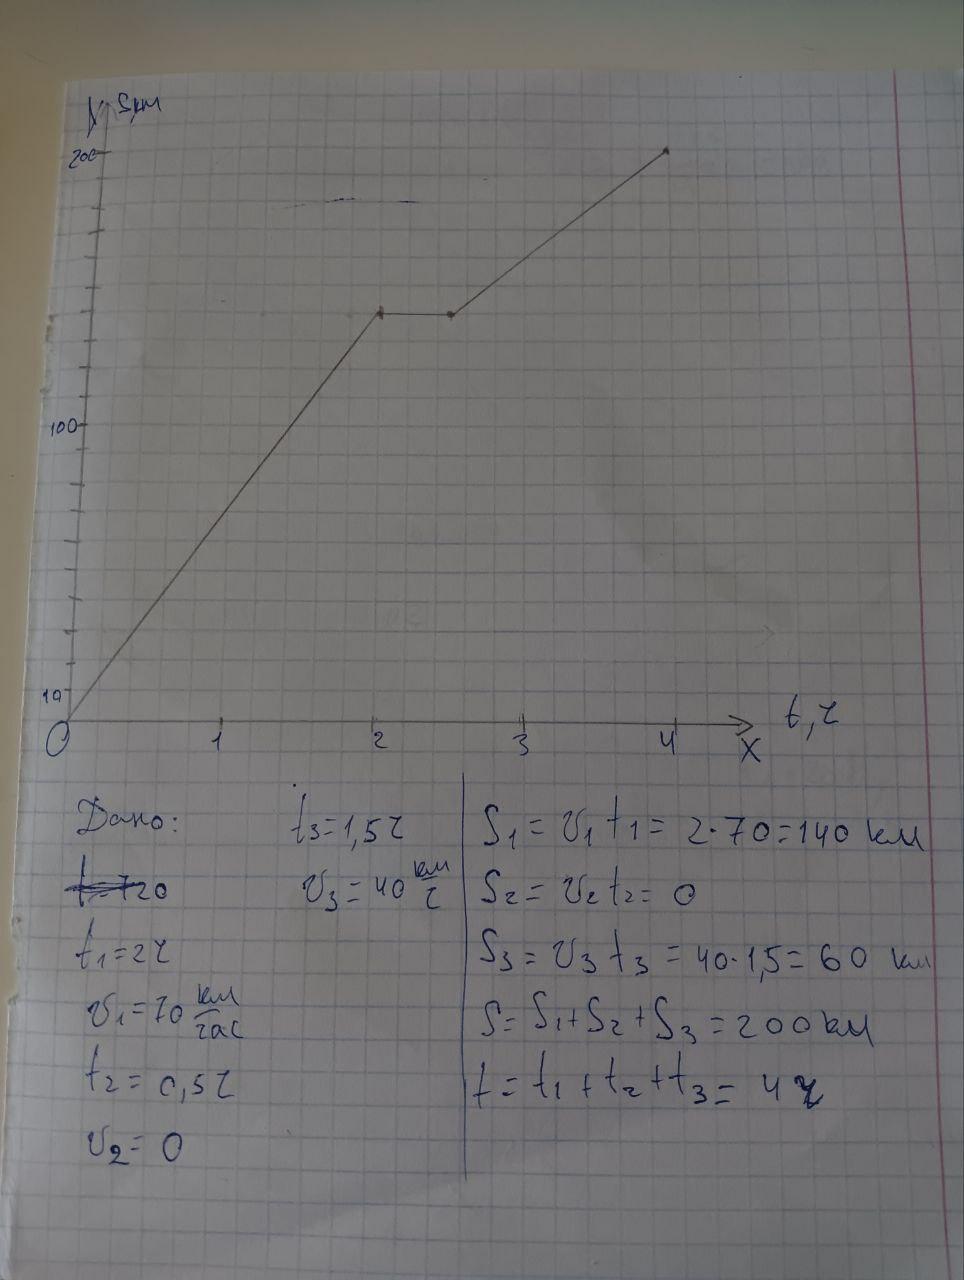 y S км
200
100
10
0 1 2 3 4 x t, ч
Дано:
t1 = 2ч
v1 = 70 км/час
t2 = 0,5ч
v2 = 0
t3 = 1,5ч
v3 = 40 км/ч
S1 = v1 t1 = 2·70 = 140 км
S2 = v2 t2 = 0
S3 = v3 t3 = 40·1,5 = 60 км
S = S1 + S2 + S3 = 200 км
t = t1 + t2 + t3 = 4 ч